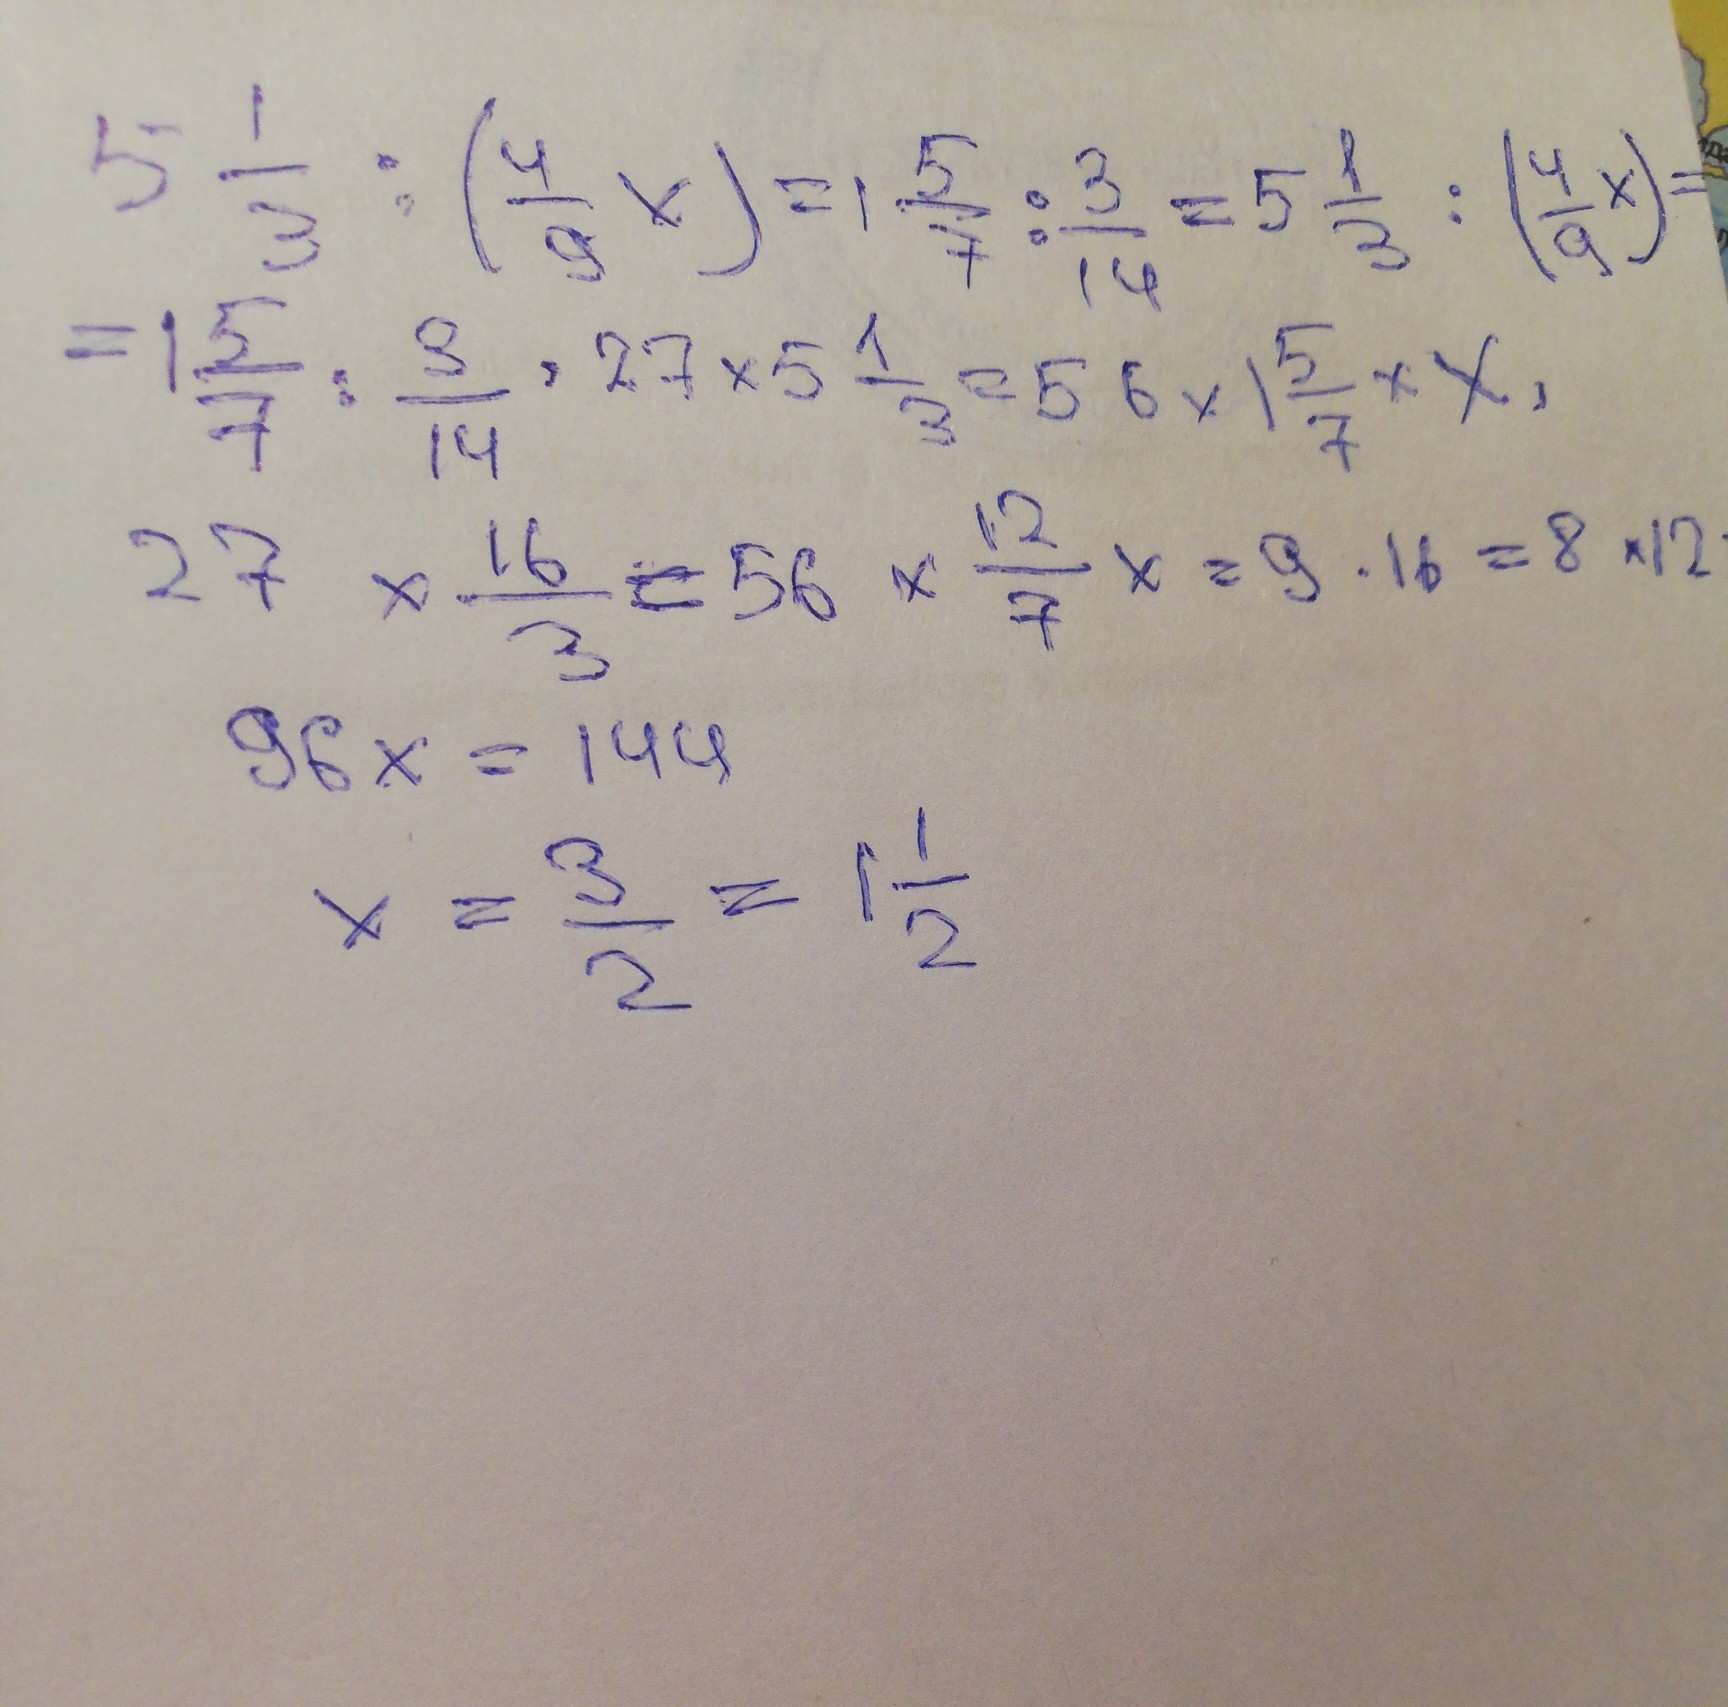 5 1/3 : (4/9 x) = 1 5/7 : 3/14 = 5 1/3 : (4/9 x) =
= 1 5/7 : 3/14 , 27 × 5 1/3 = 56 × 1 5/7 × x,
27 × 16/3 = 56 × 12/7 x = 9 · 16 = 8 × 12
96x = 144
x = 3/2 = 1 1/2